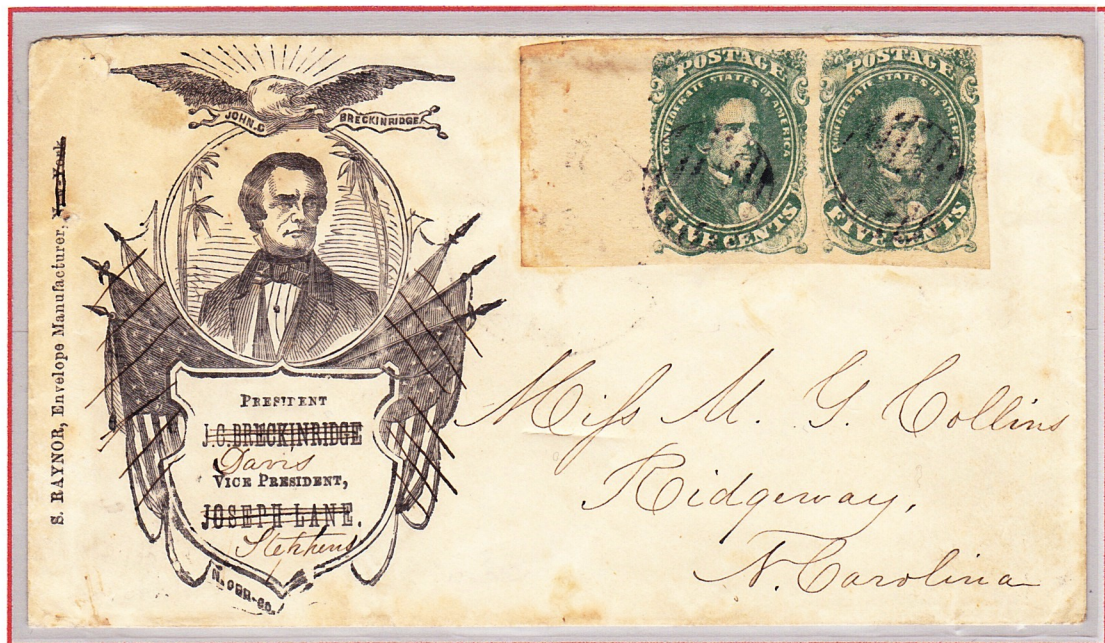 JOHN. C BRECKINRIDGE
S. RAYNOR, Envelope Manufacturer, New York
PRESIDENT
J.C. BRECKINRIDGE
Davis
VICE PRESIDENT,
JOSEPH LANE.
Stephens
N. ORR-CO.
POSTAGE
CONFEDERATE STATES OF AMERICA
FIVE CENTS
POSTAGE
CONFEDERATE STATES OF AMERICA
FIVE CENTS
Miss M. G. Collins
Ridgeway,
N. Carolina